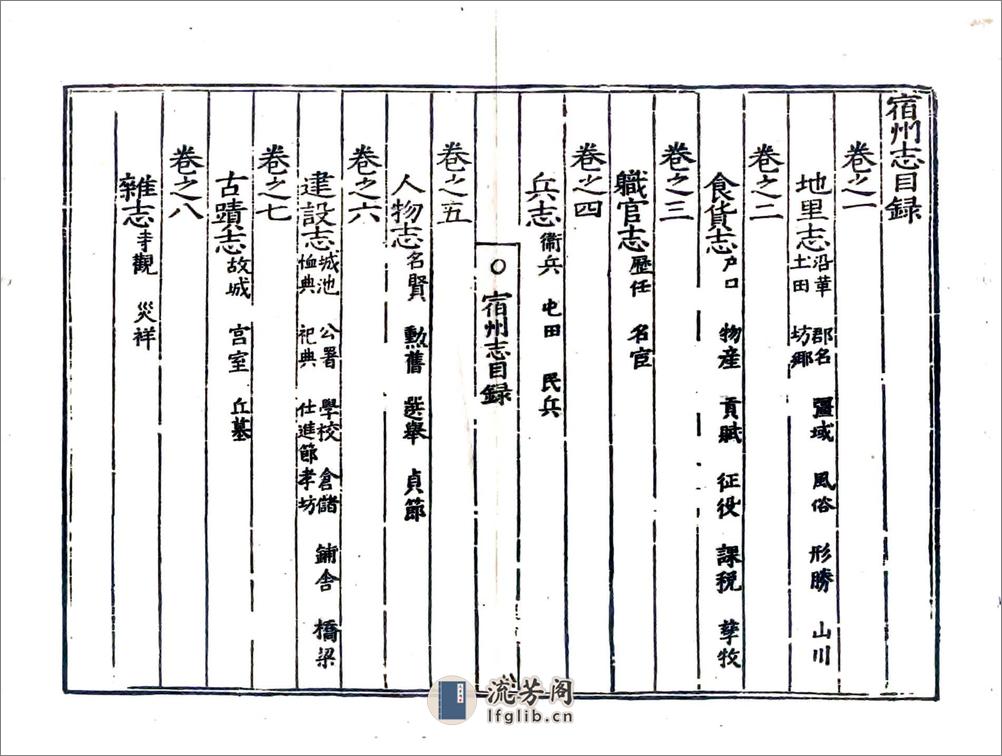 宿州志目録
卷之一
地里志 沿革 郡名 彊域 風俗 形勝 山川 土田 坊鄉
卷之二
食貨志 户口 物産 貢賦 征役 課稅 孳牧
卷之三
職官志 歷任 名宦
卷之四
兵志 衞兵 屯田 民兵
宿州志目録
卷之五
人物志 名賢 勳舊 選舉 貞節
卷之六
建設志 城池 公署 學校 倉儲 鋪舍 橋梁 恤典 祀典 仕進節孝坊
卷之七
古蹟志 故城 宫室 丘墓
卷之八
雜志 寺觀 災祥
流芳阁
lfglib.cn